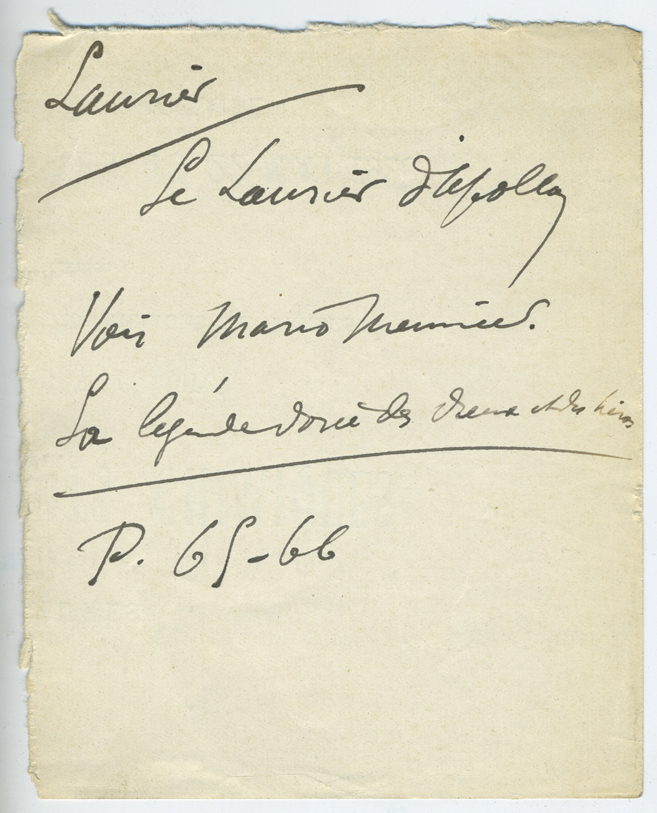 Laurier
Le Laurier d'Apollon
Voir Mario Meunier.
La légende dorée des dieux et des héros
P. 65-66